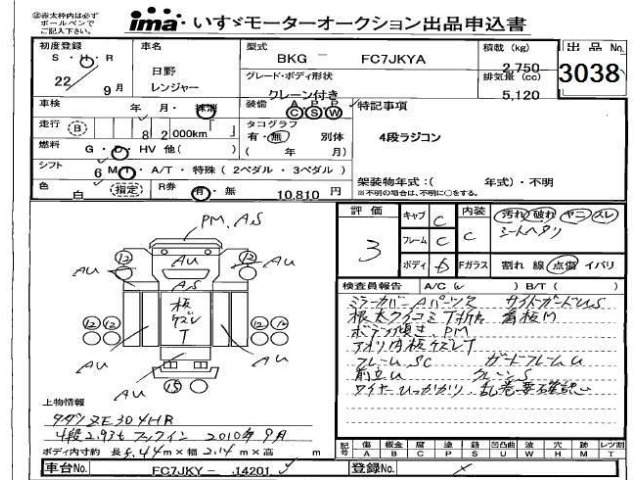 ㊟赤太枠内は必ず
ボールペンで
ご記入下さい。
ima いすゞモーターオークション出品申込書
初度登録 S・H・R 22年 9月
車名 日野 レンジャー
型式 BKG - FC7JKYA
グレード・ボディ形状 クレーン付き
積載 (kg) 2,750
排気量 (cc) 5,120
出品No. 3038
車検 年 月・抹消
装備 A P P C S W
特記事項
走行 B 82,000km
タコグラフ 有・無 別体
( 年 月)
4段ラジコン
燃料 G・D・HV 他( )
シフト 6 MT・A/T・特殊(2ペダル・3ペダル)
架装物年式:( 年式)・不明
※不明の場合は、不明に○をする。
色 白 (指定)
R券 有・無 10,810円
評価 3
キャブ C
フレーム C
ボディ b
内装 C
Fガラス
汚れ 破れ ヤニ スレ
シートヘタリ
割れ 線 点傷 イバリ
PM, AS
AU
AU
AU
AS
板
ケズレ
T
AU
AU
AU
12
12
12 12
12 12
15
検査員報告 A/C( ) B/T( )
ミラーカバー Aパーツズ サイドガードU,S
看板M
PM
アオリ内板ケズレT
フレーム SC ガードフレームU
前立U クレーンS
ワイヤーひっかかり、乱巻要不確認
上物情報
タダノZE304HR
4段2.93t フックイン 2010年9月
ボディ内寸約 長5.44m×幅2.14m×高 m
記号 傷 A 板金 B 腐 C 塗 P 錆 S 凹凸曲 U 波 W 穴 H 跡 M レツ割 T
車台No. FC7JKY - 14201
登録No.